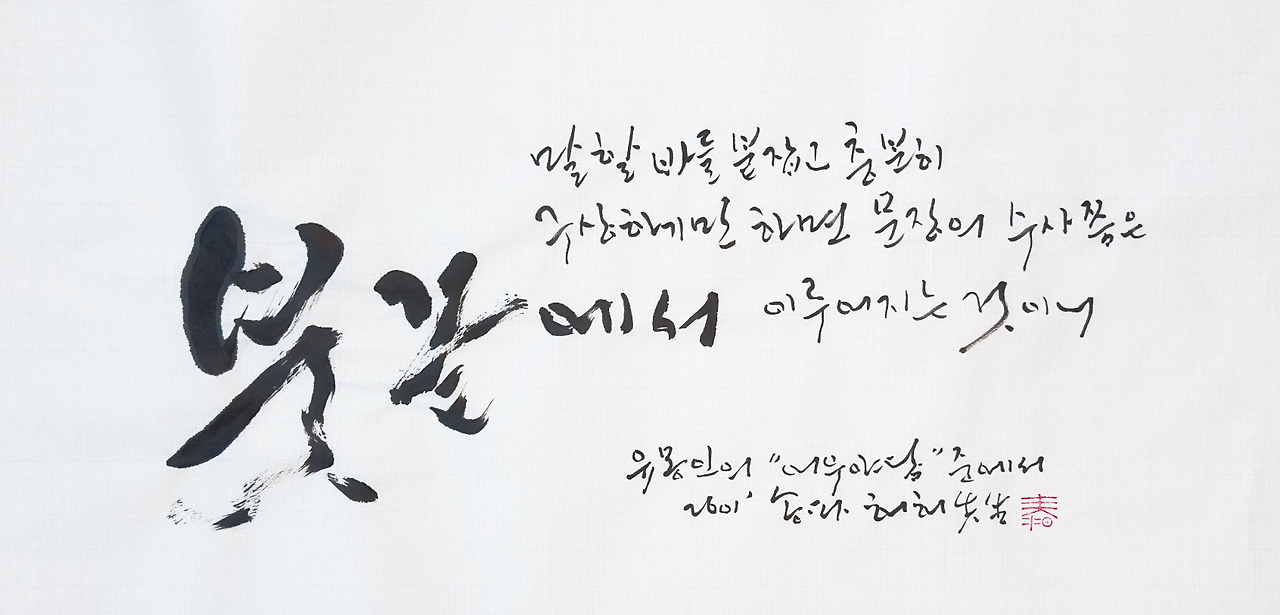 붓끝에서
말할 바를 붙잡고 충분히
구상하게만 하면 문장의 수사쯤은
이루어지는 것이니
유몽인의 "어우야담" 중에서
2001' 허허